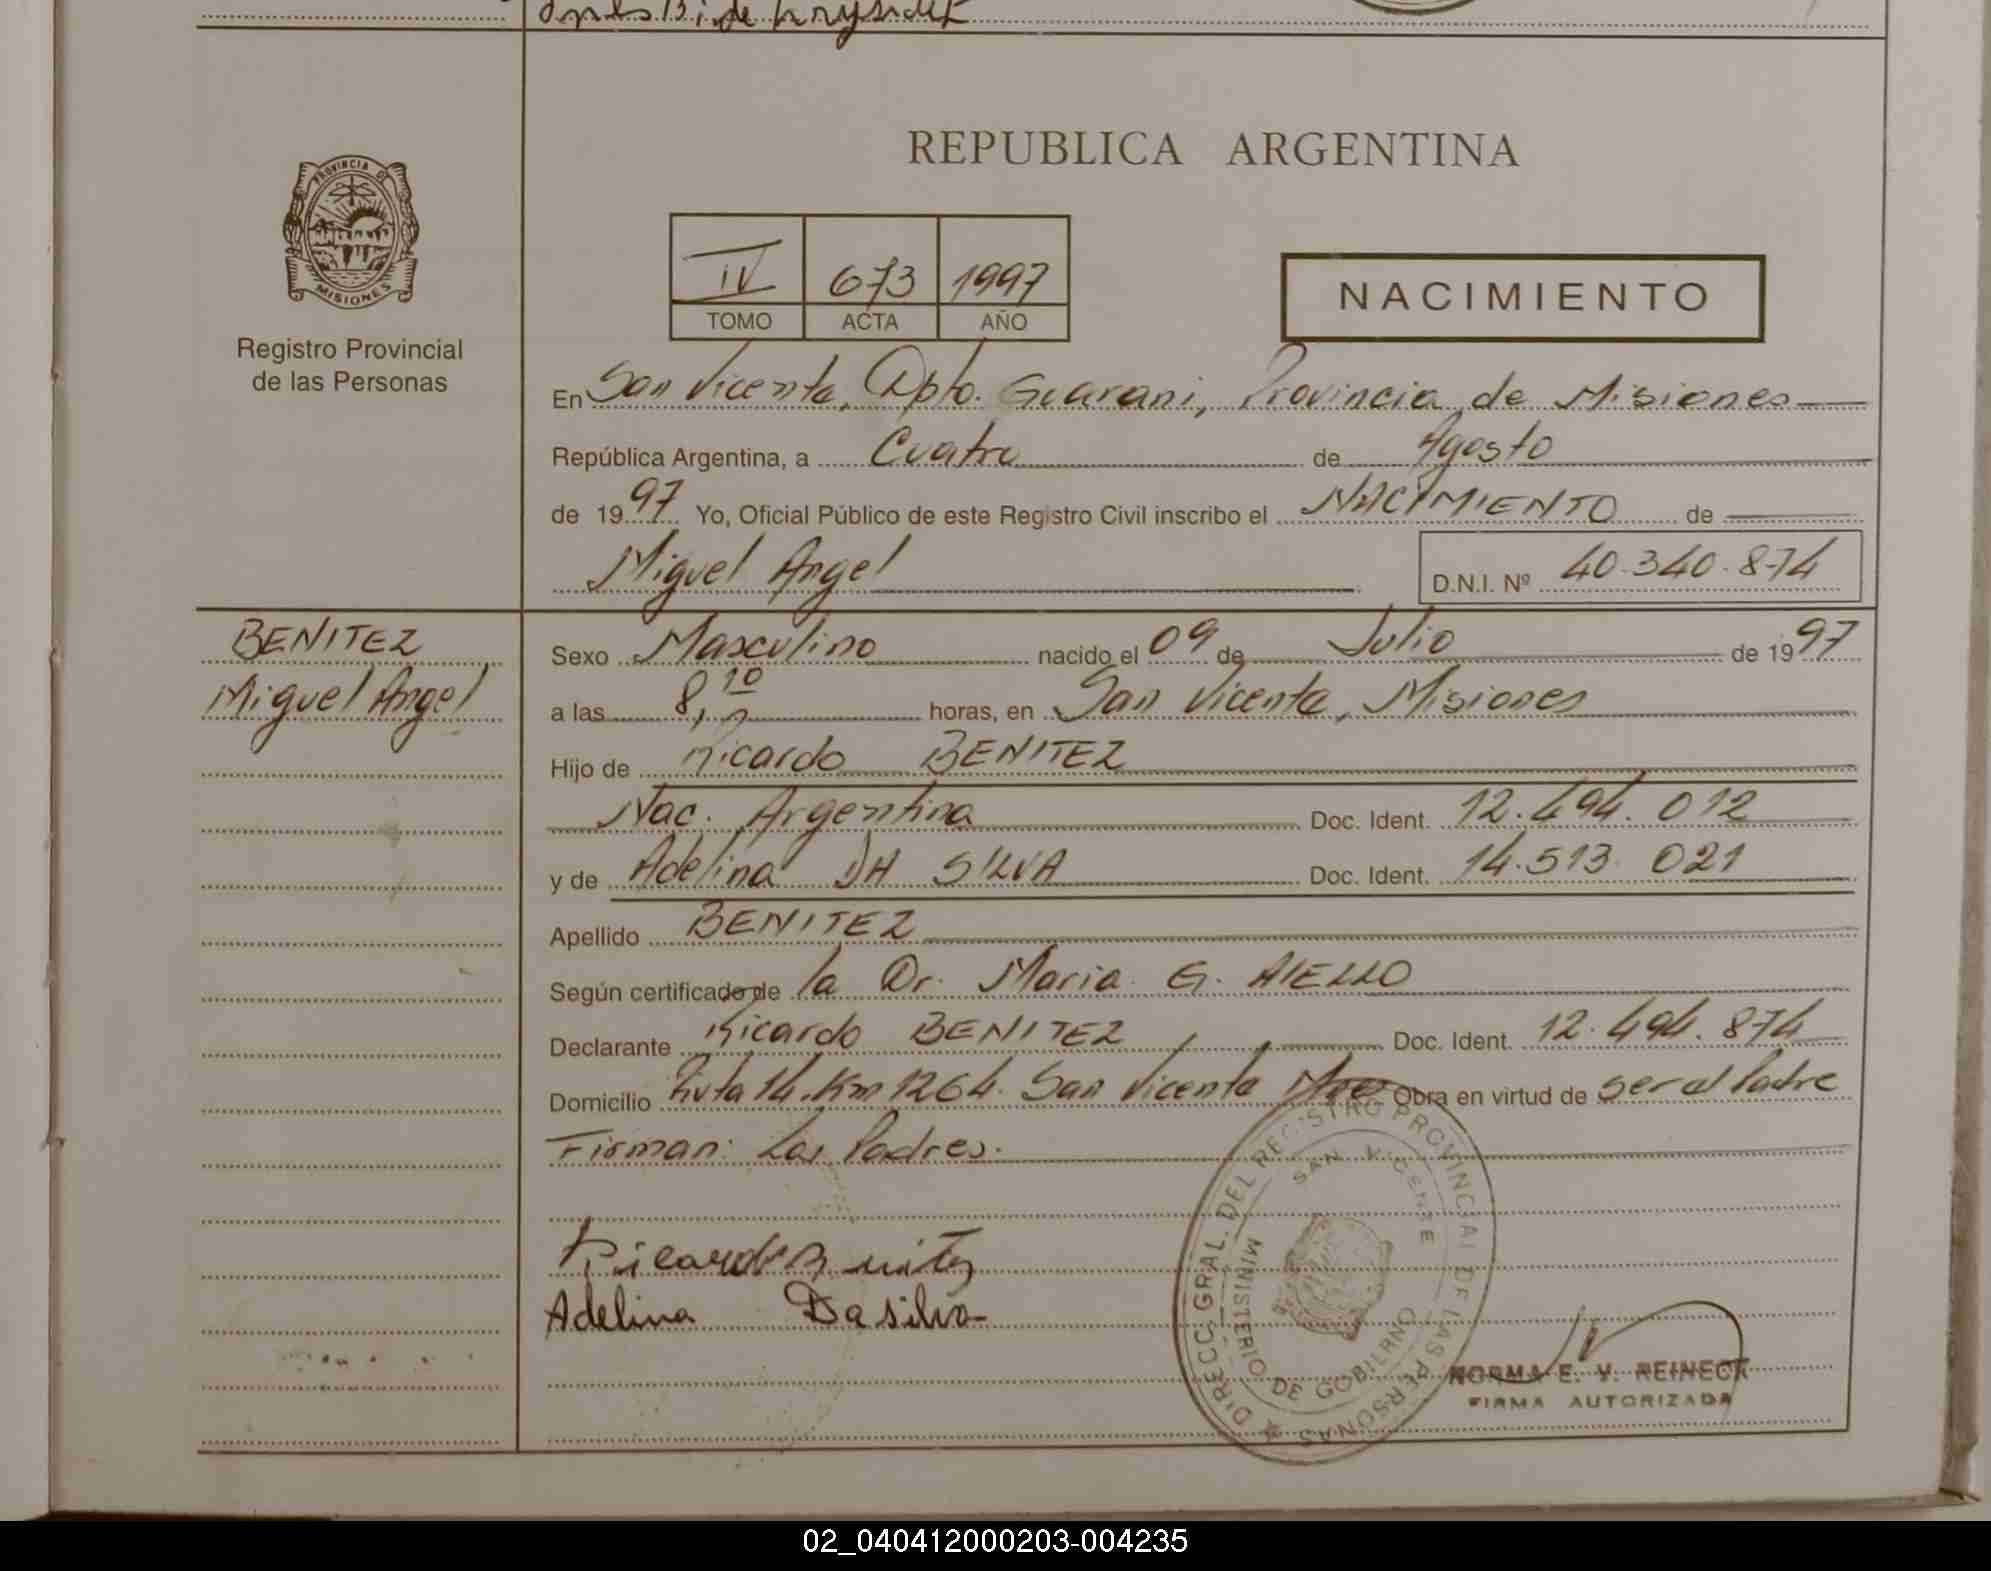 REPUBLICA ARGENTINA
PROVINCIA DE
MISIONES
Registro Provincial
de las Personas
IV 673 1997
TOMO ACTA AÑO
NACIMIENTO
En San Vicente, Dpto. Guarani, Provincia de Misiones
República Argentina, a Cuatro de Agosto
de 1997 Yo, Oficial Público de este Registro Civil inscribo el NACIMIENTO de
Miguel Angel D.N.I. Nº 40.340.874
BENITEZ
Miguel Angel
Sexo Masculino nacido el 09 de Julio de 1997
a las 8,10 horas, en San Vicente, Misiones
Hijo de Ricardo BENITEZ
Nac. Argentina Doc. Ident. 12.494.012
y de Adelina DA SILVA Doc. Ident. 14.513.021
Apellido BENITEZ
Según certificado de la Dr. Maria G. AIELLO
Declarante Ricardo BENITEZ Doc. Ident. 12.494.874
Domicilio Ruta 14. Km 1264. San Vicente Mnes Obra en virtud de ser el Padre
Firman: Los Padres.
Ricardo Benitez
Adelina Da silva
DIRECC. GRAL. DEL REGISTRO PROVINCIAL DE LAS PERSONAS
SAN VICENTE
MINISTERIO DE GOBIERNO
NORMA E. V. REINECK
FIRMA AUTORIZADA
02_040412000203-004235